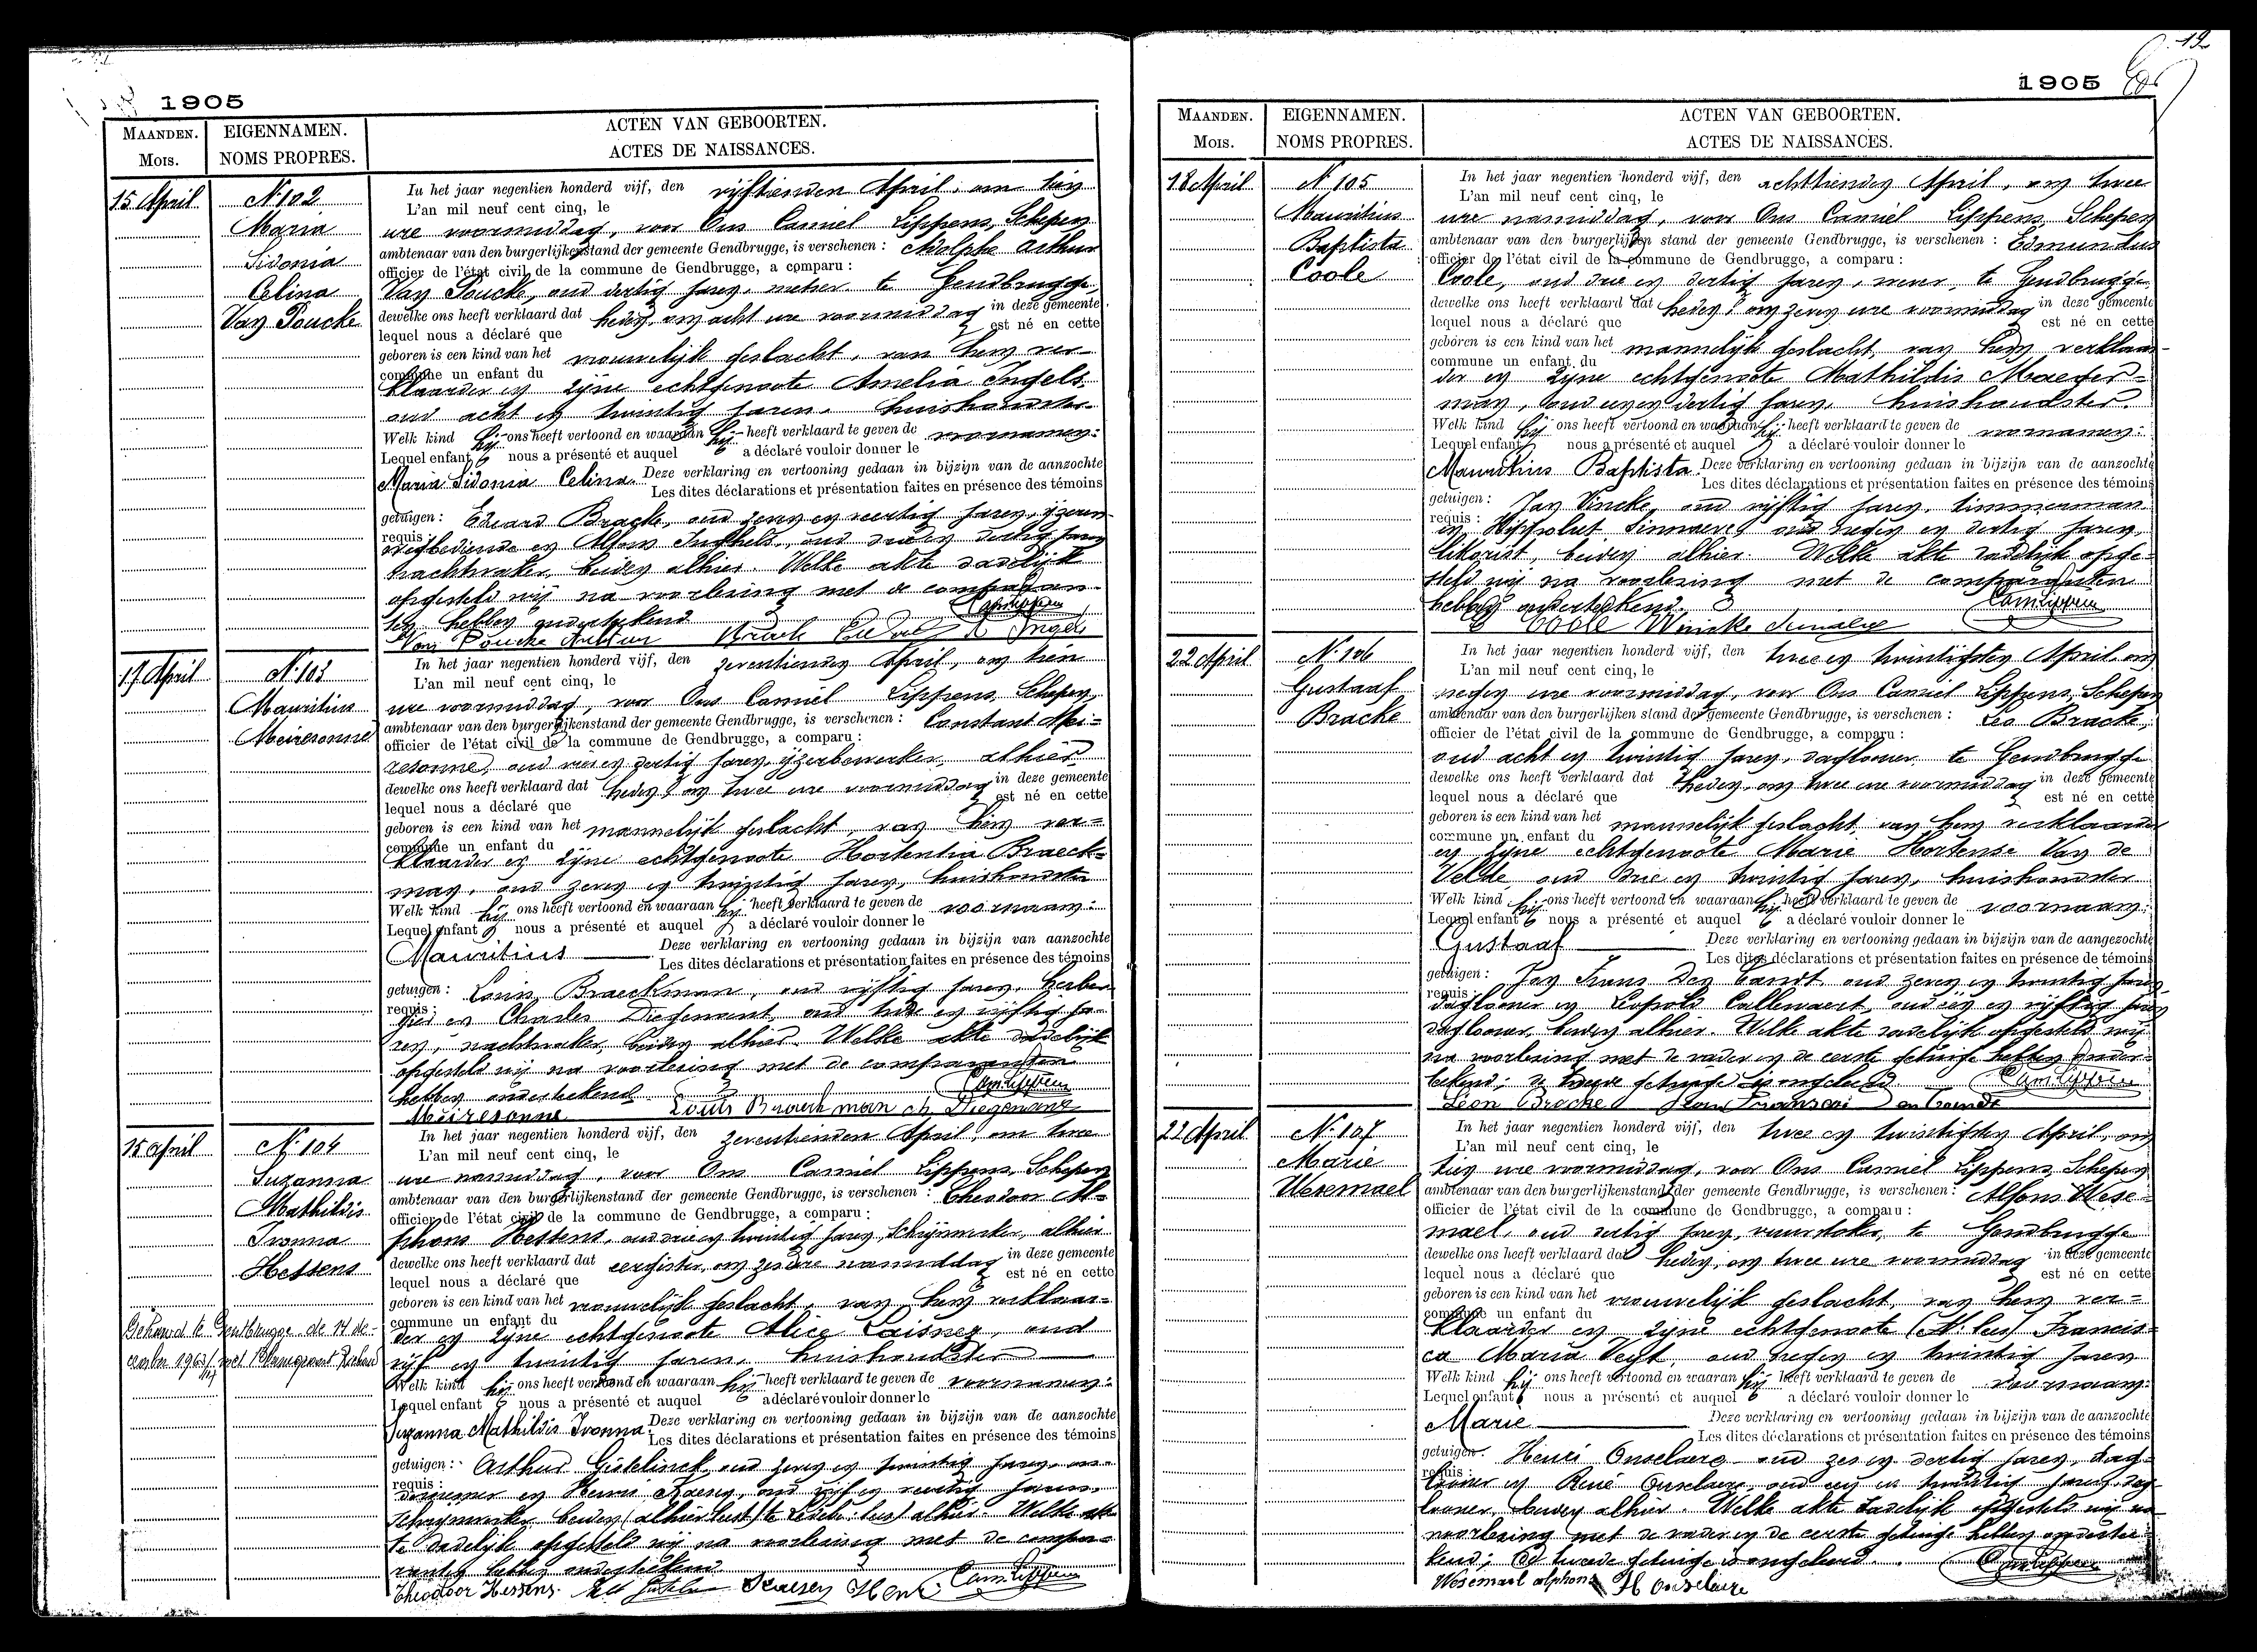 1905
MAANDEN.
Mois.
EIGENNAMEN.
NOMS PROPRES.
ACTEN VAN GEBOORTEN.
ACTES DE NAISSANCES.
15 April
N. 102
Maria
Sidonia
Celina
Van Poucke
In het jaar negentien honderd vijf, den vijftienden April, om tien
L'an mil neuf cent cinq, le
ure voormiddag, voor Ons Camiel Lippens, Schepen
ambtenaar van den burgerlijkenstand der gemeente Gendbrugge, is verschenen : Adolphe Arthur
officier de l'état civil de la commune de Gendbrugge, a comparu :
Van Poucke, oud dertig jaren, metser te Gendbrugge,
dewelke ons heeft verklaard dat heden, om acht ure voormiddag in deze gemeente
lequel nous a déclaré que est né en cette
geboren is een kind van het vrouwelijk geslacht, van hem ver-
commune un enfant du
klaarder en zijne echtgenoote Amelia Ingels
oud acht en twintig jaren, huishoudster
Welk kind hij ons heeft vertoond en waaraan hij heeft verklaard te geven de voornamen:
Lequel enfant nous a présenté et auquel a déclaré vouloir donner le
Maria Sidonia Celina. Deze verklaring en vertooning gedaan in bijzijn van de aanzochte
Les dites déclarations et présentation faites en présence des témoins
getuigen : Eduard Bracke, oud zeven en veertig jaren, ijzeren
requis :
wegbediende en Alfons Inghels, oud dertig jaren
nachtwaker, beiden alhier. Welke akte dadelijk
opgesteld wij na voorlezing met de comparan-
ten hebben onderteekend
Van Poucke Arthur Ingels
17 April
N. 103
Mauritius
Meiresonne
In het jaar negentien honderd vijf, den zeventienden April, om tien
L'an mil neuf cent cinq, le
ure voormiddag, voor Ons Camiel Lippens, Schepen,
ambtenaar van den burgerlijkenstand der gemeente Gendbrugge, is verschenen : Constant Mei-
officier de l'état civil de la commune de Gendbrugge, a comparu :
resonne, oud dertig jaren, ijzerbewerker, alhier
dewelke ons heeft verklaard dat heden, om twee ure voormiddag in deze gemeente
lequel nous a déclaré que est né en cette
geboren is een kind van het mannelijk geslacht, van hem ver-
commune un enfant du
klaarder en zijne echtgenoote Hortentia Braeck-
man, oud zeven en twintig jaren, huishoudster
Welk kind hij ons heeft vertoond en waaraan hij heeft verklaard te geven de voornaam:
Lequel enfant nous a présenté et auquel a déclaré vouloir donner le
Mauritius Deze verklaring en vertooning gedaan in bijzijn van aanzochte
Les dites déclarations et présentation faites en présence des témoins
getuigen : Louis Braeckman, oud vijftig jaren, herber-
requis :
gier en Charles Diegenant, oud twee en vijftig ja-
ren, nachtwaker, beiden alhier. Welke akte dadelijk
opgesteld wij na voorlezing met de comparanten
hebben onderteekend
Meiresonne Louis Braeckman ch Diegenant
15 April
N. 104
Suzanna
Mathildis
Ivonna
Hessens
Gehuwd te Gentbrugge de 14 de-
cember 1963
In het jaar negentien honderd vijf, den zeventienden April, om twee
L'an mil neuf cent cinq, le
ure namiddag, voor Ons Camiel Lippens, Schepen
ambtenaar van den burgerlijkenstand der gemeente Gendbrugge, is verschenen : Al-
officier de l'état civil de la commune de Gendbrugge, a comparu :
phons Hessens, oud en twintig jaren, Schrijnwerker, alhier
dewelke ons heeft verklaard dat eergister, om zes ure namiddag in deze gemeente
lequel nous a déclaré que est né en cette
geboren is een kind van het vrouwelijk geslacht, van hem verklaar-
commune un enfant du
der en zijne echtgenoote Alice Laisnez, oud
vijf en twintig jaren, huishoudster
Welk kind hij ons heeft vertoond en waaraan hij heeft verklaard te geven de voornamen:
Lequel enfant nous a présenté et auquel a déclaré vouloir donner le
Suzanna Mathildis Ivonna. Deze verklaring en vertooning gedaan in bijzijn van de aanzochte
Les dites déclarations et présentation faites en présence des témoins
getuigen : Arthur oud zeven en twintig jaren,
requis :
en Henri oud vijf en veertig jaren,
schrijnwerker beiden alhier. Welke ak-
te dadelijk opgesteld wij na voorlezing met de compa-
ranten hebben onderteekend
Theodoor Hessens.
1905
MAANDEN.
Mois.
EIGENNAMEN.
NOMS PROPRES.
ACTEN VAN GEBOORTEN.
ACTES DE NAISSANCES.
18 April
N. 105
Mauritius
Baptista
Coole
In het jaar negentien honderd vijf, den achttienden April, om twee
L'an mil neuf cent cinq, le
ure namiddag, voor Ons Camiel Lippens, Schepen
ambtenaar van den burgerlijken stand der gemeente Gendbrugge, is verschenen : Edmundus
officier de l'état civil de la commune de Gendbrugge, a comparu :
Coole, oud drie en dertig jaren, te Gendbrugge
dewelke ons heeft verklaard dat heden, om zeven ure voormiddag in deze gemeente
lequel nous a déclaré que est né en cette
geboren is een kind van het mannelijk geslacht, van hem verklaar-
commune un enfant du
der en zijne echtgenoote Mathildis
man, oud dertig jaren, huishoudster.
Welk kind hij ons heeft vertoond en waaraan hij heeft verklaard te geven de voornamen:
Lequel enfant nous a présenté et auquel a déclaré vouloir donner le
Mauritius Baptista. Deze verklaring en vertooning gedaan in bijzijn van de aanzochte
Les dites déclarations et présentation faites en présence des témoins
getuigen : Jan Vincke, oud vijftig jaren, timmerman
requis :
en Hippoliet oud negen en dertig jaren,
beiden alhier. Welke akte dadelijk opge-
steld wij na voorlezing met de comparanten
hebben onderteekend.
Coole
22 April
N. 106
Gustaaf
Bracke
In het jaar negentien honderd vijf, den twee en twintigsten April, om
L'an mil neuf cent cinq, le
negen ure voormiddag, voor Ons Camiel Lippens, Schepen
ambtenaar van den burgerlijken stand der gemeente Gendbrugge, is verschenen : Leo Bracke,
officier de l'état civil de la commune de Gendbrugge, a comparu :
oud acht en twintig jaren, daglooner te Gendbrugge
dewelke ons heeft verklaard dat heden, om twee ure voormiddag in deze gemeente
lequel nous a déclaré que est né en cette
geboren is een kind van het mannelijk geslacht, van hem verklaarder
commune un enfant du
en zijne echtgenoote Marie Hortense Van de
Velde, oud drie en twintig jaren, huishoudster
Welk kind hij ons heeft vertoond en waaraan hij heeft verklaard te geven de voornaam:
Lequel enfant nous a présenté et auquel a déclaré vouloir donner le
Gustaaf Deze verklaring en vertooning gedaan in bijzijn van de aangezochte
Les dites déclarations et présentation faites en présence de témoins
getuigen : Jan Frans Den oud zeven en twintig jaren
requis :
daglooner en Leopold Callewaert, oud en vijftig jaren
daglooner, beiden alhier. Welke akte dadelijk opgesteld wij
na voorlezing met de vader en de eerste getuige hebben onder-
teekend; de tweede getuige is ongeleerd.
Léon Bracke
22 April
N. 107
Marie
Wesemael
In het jaar negentien honderd vijf, den twee en twintigsten April, om
L'an mil neuf cent cinq, le
tien ure voormiddag, voor Ons Camiel Lippens, Schepen
ambtenaar van den burgerlijkenstand der gemeente Gendbrugge, is verschenen : Alfons Wese-
officier de l'état civil de la commune de Gendbrugge, a comparu :
mael, oud dertig jaren, vuurstoker, te Gendbrugge
dewelke ons heeft verklaard dat heden, om twee ure voormiddag in deze gemeente
lequel nous a déclaré que est né en cette
geboren is een kind van het vrouwelijk geslacht van hem ver-
commune un enfant du
klaarder en zijne echtgenoote Francis-
ca Maria Veyt, oud negen en twintig jaren
Welk kind hij ons heeft vertoond en waaran hij heeft verklaard te geven de voornaam:
Lequel enfant nous a présenté et auquel a déclaré vouloir donner le
Marie Deze verklaring en vertooning gedaan in bijzijn van de aanzochte
Les dites déclarations et présentation faites en présence des témoins
getuigen. Henri Onselaere oud zes en dertig jaren, dag-
requis :
looner en René Onselaere, oud en twintig jaren, dag-
looner, beiden alhier. Welke akte dadelijk opgesteld wij na
voorlezing met de vader en de eerste getuige hebben onderte-
kend; de tweede getuige is ongeleerd.
Wesemael alphons H Onselaere